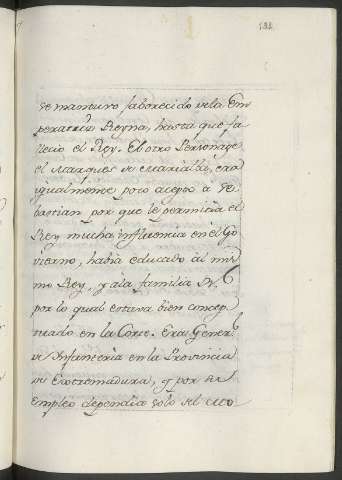 se mantuvo faborecido dela Em
peratriz Reyna, hasta que fa
llecio el Rey. El otro Personage
el Marques de Marialba, era
igualmente poco acepto à Se
bastian por que le permitia el
Rey mucha influencia en el Go
vierno, habia educado al mis
mo Rey, y ala familia R.l
por lo qual estava bien concep
tuado en la Corte. Era Gener.l
de Infanteria en la Provincia
de Extremadura, y por su
empleo dependia solo del